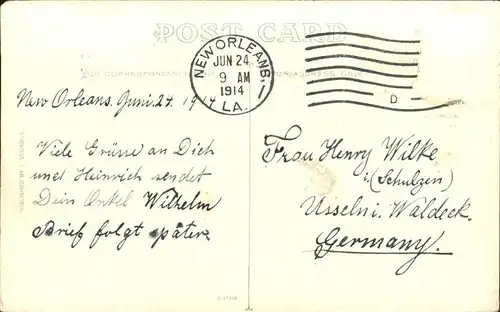 POST CARD
NEW ORLEANS,
JUN 24
9 AM
1914
LA.
D
FOR CORRESPONDENCE
FOR ADDRESS ONLY
New Orleans. Juni. 24. 1914
Viele Grüsse an Dich
und Heinrich sendet
Dein Onkel Wilhelm
Brief folgt später.
Frau Henry Wilke
i: (Schulzen)
Usseln i. Waldeck.
Germany.